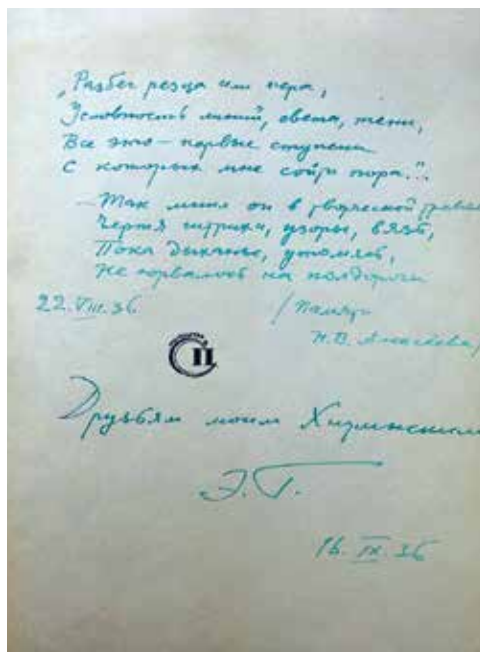 „Разбег резца или пера,
Условность линий, света, тени,
Все это — первые ступени
С которых мне сойти пора..."
— Так мнил он в творческой тревоге
Чертя штрихи, узоры, вязь,
Пока дыханье, утомясь,
Не порвалось на полдороги
22.VIII.36
/Памяти
Н. В. Алексеева/
Друзьям моим Хижинским
Э. Г.
16.IX.36